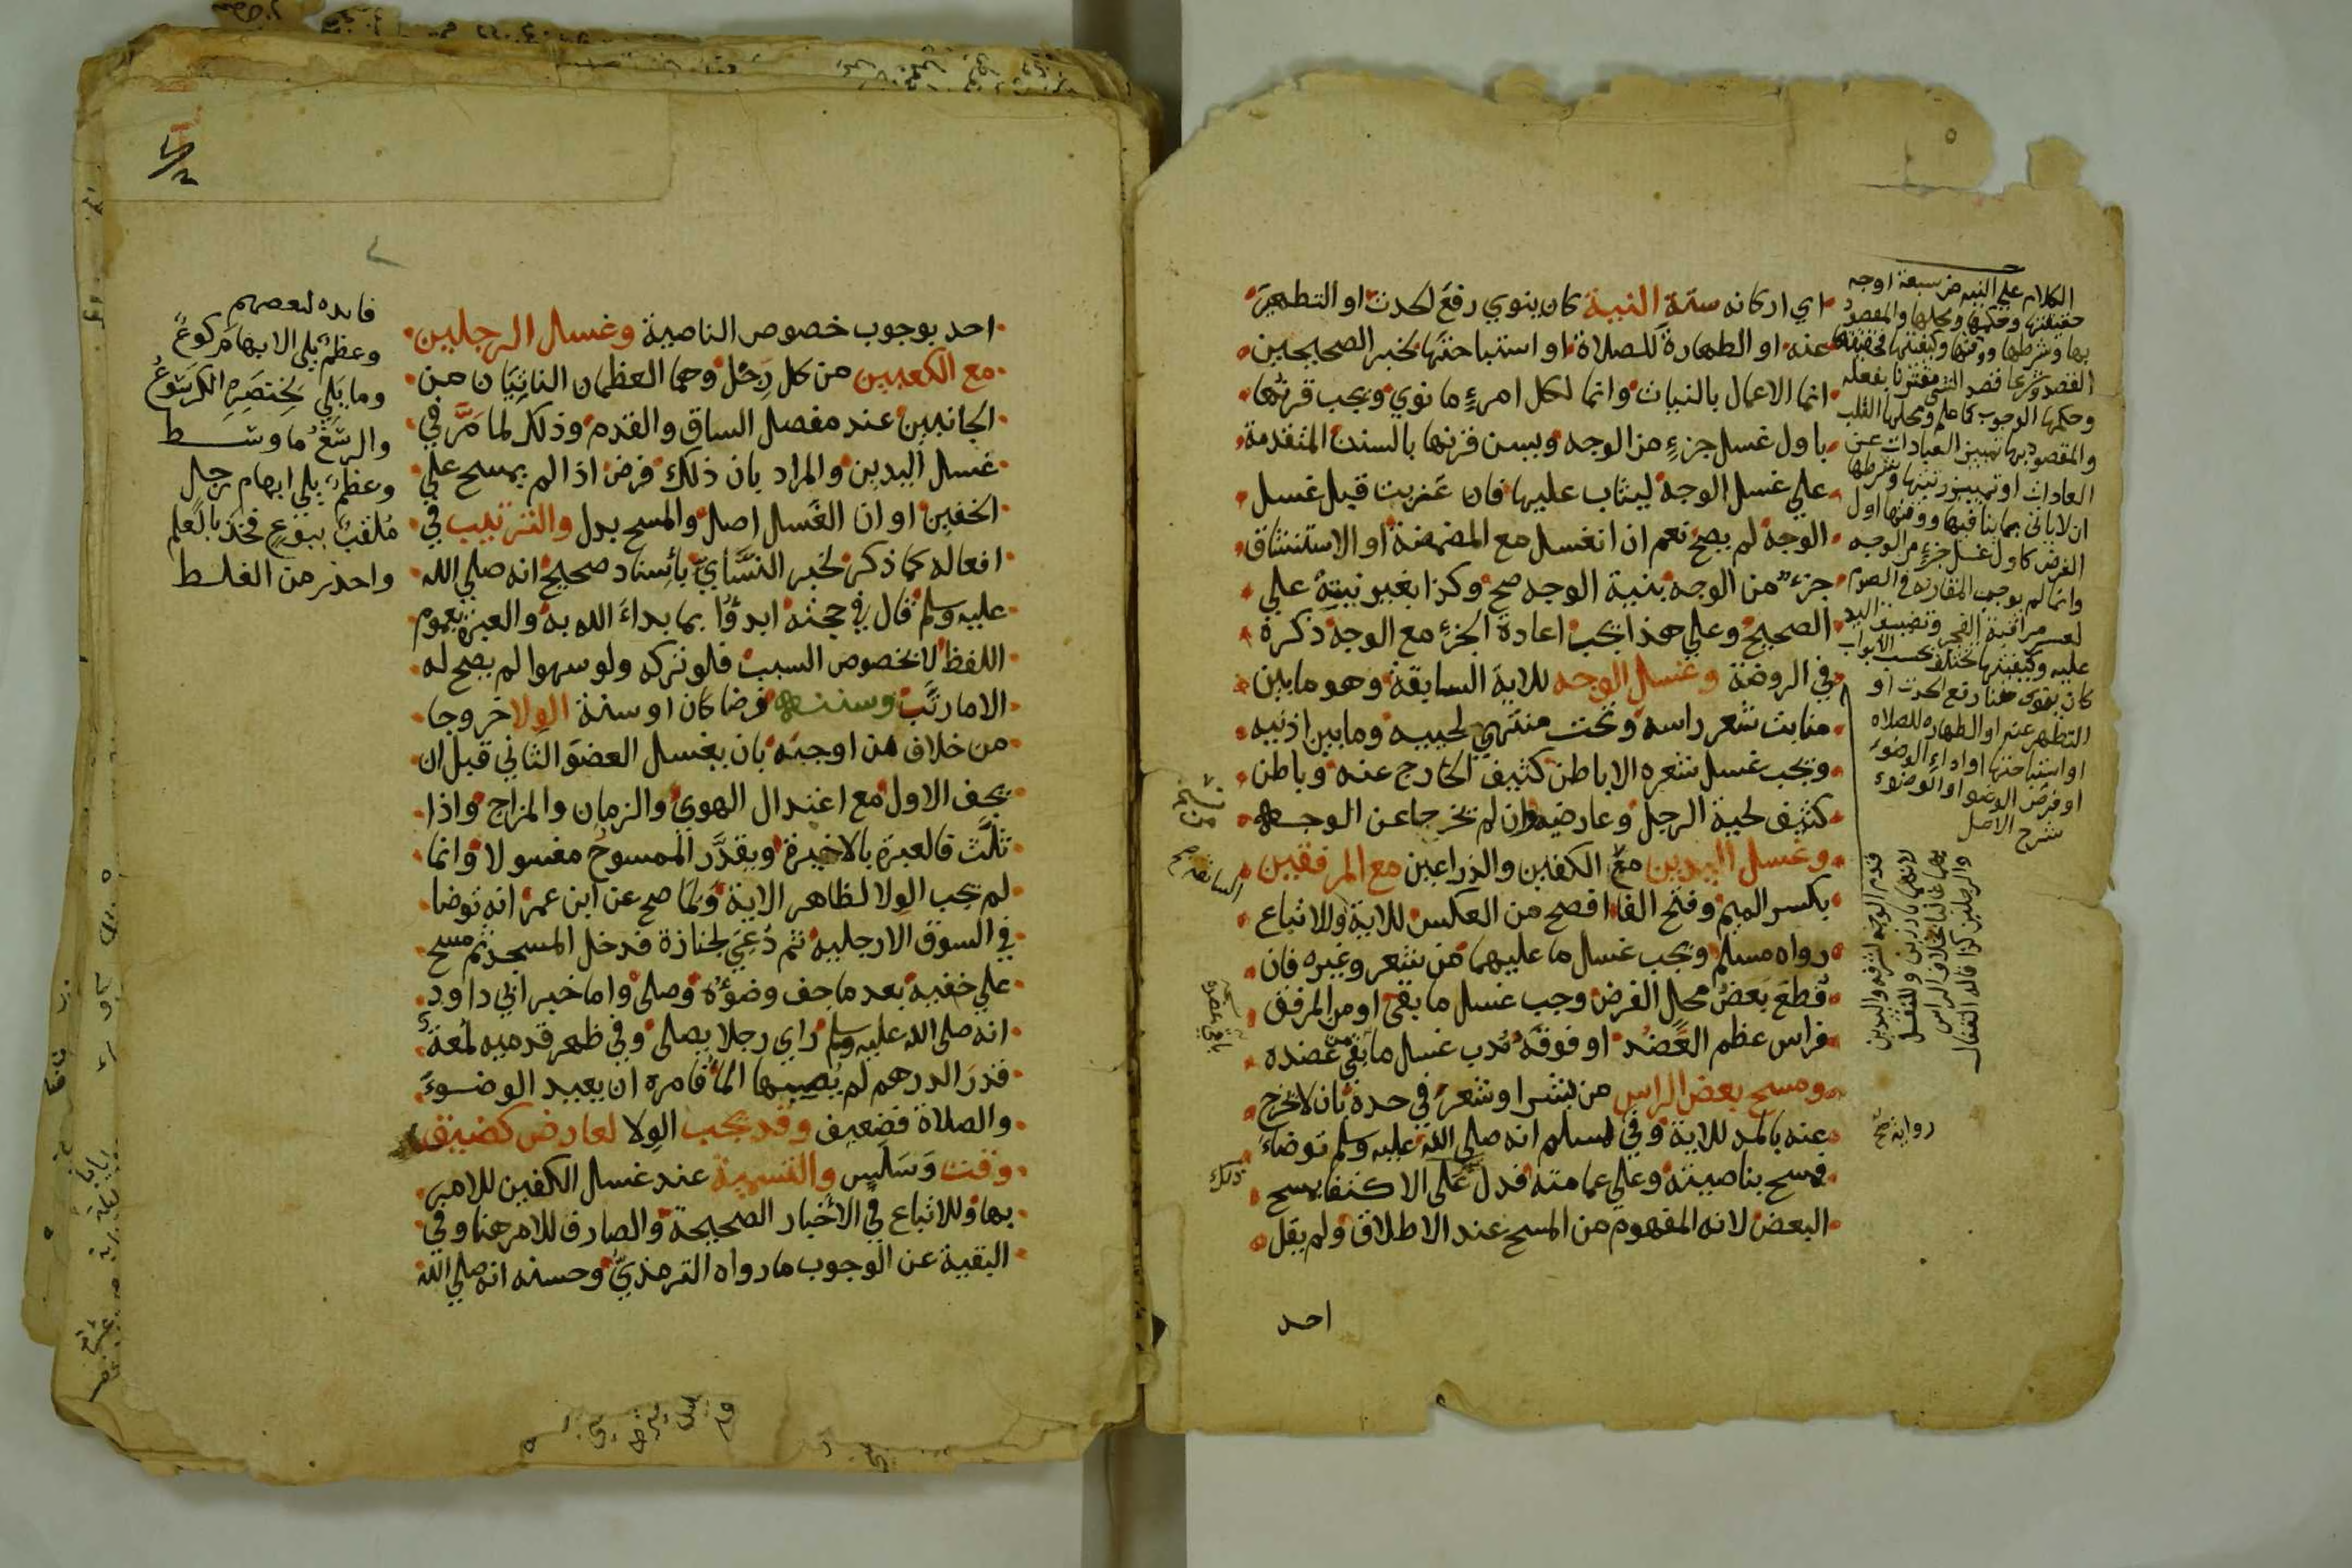 اي اركانه ستة النية كان ينوي رفع الحدث او التطهر
عنه او الطهارة للصلاة او استباحتها لخبر الصحيحين
انما الاعمال بالنيات وانما لكل امرءٍ ما نوي ويجب قرنها
باول غسل جزءٍ من الوجه ويسن قرنها بالسنن المتقدمة
علي غسل الوجه ليثاب عليها فان عزبت قبل غسل
الوجه لم يصح نعم ان انغسل مع المضمضة او الاستنشاق
جزء من الوجه بنية الوجه صح وكذا بغير نيته علي
الصحيح وعلي هذا يجب اعادة الجزء مع الوجه ذكره
في الروضة وغسل الوجه للاية السابقة وهو ما بين
منابت شعر راسه وتحت منتهي لحييه وما بين اذنيه
ويجب غسل شعره الا باطن كثيف الخارج عنه وباطن
كثيف لحية الرجل وعارضيه وان لم تخرجا عن الوجه
وغسل اليدين مع الكفين والذراعين مع المرفقين
بكسر الميم وفتح الفا افصح من العكس للاية والاتباع
رواه مسلم ويجب غسل ما عليهما من شعر وغيره فان
قُطع بَعضُ محل الفرض وجب غسل ما بقي او من المرفق
فراس عظم العَضُد او فوقه نُدب غسل ما بقي من عضده
ومسح بعض الراس من بشر او شعر في حده بان لا يخرج
عنه بالمد للاية وفي لمسلم انه صلي الله عليه وسلم توضاء
فمسح بناصيته وعلي عمامته فدل علي الاكتفا بمسح
البعض لانه المفهوم من المسح عند الاطلاق ولم يقل
احد
الكلام علي النيه من سبعة اوجه
حقيقتها وحكمها ومحلها والمقصود
بها وشرطها ووقتها وكيفيتها فحقيقتها
القصد وشرعا قصد الشي مقترنا بفعله
وحكمها الوجوب كما علم ومحلها القلب
والمقصود بها تمييز العبادات عن
العادات او تمييز رتبتها وشرطها
ان لا ياتي بما ينافيها ووقتها اول
الفرض كاول غسل جزءٍ من الوجه
وانما لم يوجب المقارنه في الصوم
لعسر مراقبة الفجر
عليه وكيفيتها تختلف بحسب الابواب
كان ينوي هنا رفع الحدث او
التطهر عنه او الطهاره للصلاه
او استباحتها او اداء الوضوء
او فرض الوضوء او الوضوء
شرح الاصل
قدم الوجه لشرفه واليدين
لانهما بارزين
بهما غالبا بخلاف الراس
والرجلين كذا قاله القفال
رواية صح
السابقة صح
ذلك
احد بوجوب خصوص الناصية وغسل الرجلين
مع الكعبين من كل رِجْل وهما العظمان الناتِيَان من
الجانبين عند مفصل الساق والقدم وذلك لما مَرَّ في
غسل اليدين والمراد بان ذلك فرض اذا لم يمسح علي
الخفين او ان الغَسل اصل والمسح بدل والترتيب في
افعاله كما ذكر لخبر النسَّاي بإسناد صحيح انه صلي الله
عليه وسلم قال في حجته ابدؤا بما بداءَ الله به والعبرة بعموم
اللفظ لا بخصوص السبب فلو تركه ولو سهوا لم يصح له
الا ما رتَّب وسننه فرضا كان او سنة الولا خروجا
من خلاف من اوجبه بان يغسل العضو الثاني قبل ان
يجف الاول مع اعتدال الهوي والزمان والمزاج واذا
ثلَّث فالعبرة بالاخيرة ويقدَّر الممسوح مغسولا وانما
لم يجب الولا لظاهر الاية ولما صح عن ابن عمر انه توضا
في السوق الا رجليه ثم دُعِيَ لجنازة فدخل المسجد ثم مسح
علي خفيه بعد ما جف وضوءه وصلي واما خبر ابي داود
انه صلي الله عليه وسلم راي رجلا يصلي وفي ظهر قدميه لُمعة
قدر الدرهم لم يُصِبها الما فامره ان يعيد الوضوءَ
والصلاة فضعيف وقد يجب الولا لعارض كضيق
وقت وَسَلَسٍ والتسمية عند غسل الكفين للامر
بها وللاتباع في الاخبار الصحيحة والصارف للامر هنا وفي
البقية عن الوجوب ما رواه الترمذيّ وحسنه انه صلي الله
فايده لبعضهم
وعظمٌ يلي الابهام كوعٌ
وما يَلِي لخنصره الكرسوعُ
والرسغ ما وسط
وعظمٌ يلي ابهام رجلٍ
مُلقبٌ ببوعٍ فخذ بالعلم
واحذر من الغلط